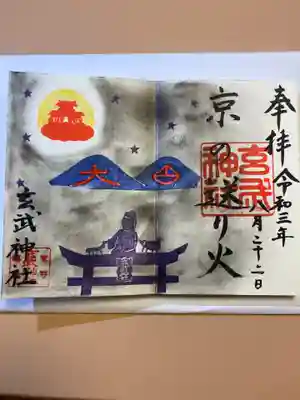 奉拝
令和三年
八月二十二日
京の送り火
玄武神社
大
玄武神社